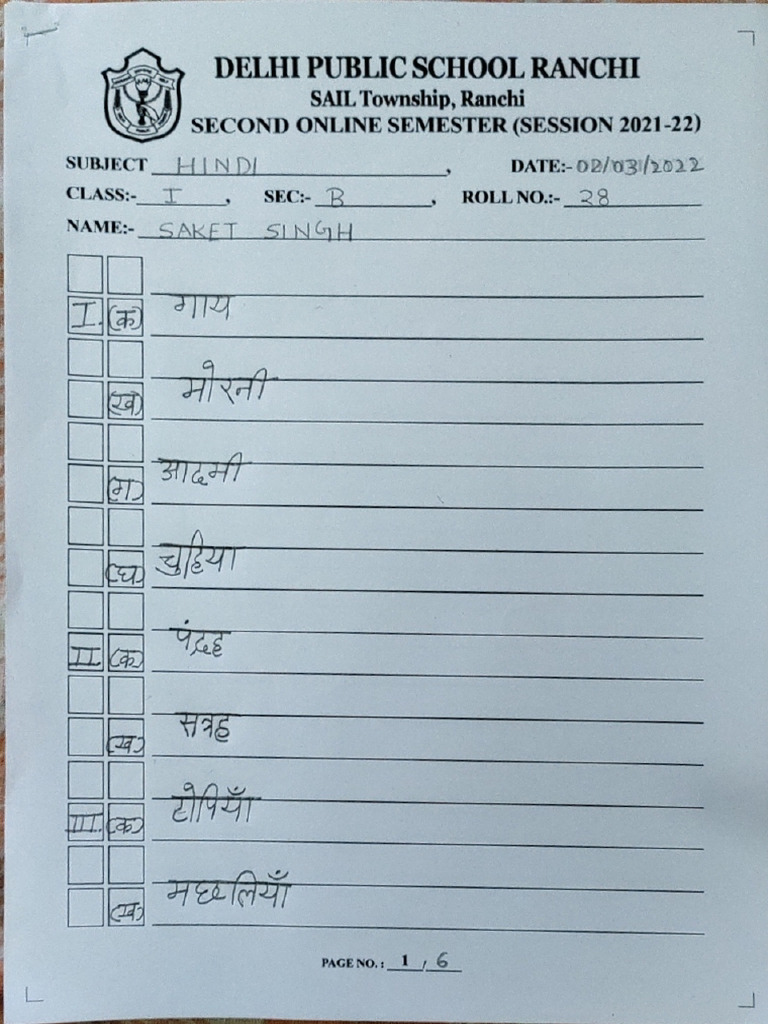 DELHI PUBLIC SCHOOL RANCHI
SAIL Township, Ranchi
SECOND ONLINE SEMESTER (SESSION 2021-22)
SUBJECT HINDI, DATE:- 02/03/2022
CLASS:- I, SEC:- B, ROLL NO.:- 28
NAME:- SAKET SINGH
I. (क) गाय
(ख) मोरनी
(ग) आदमी
(घ) चुहिया
II. (क) पंद्रह
(ख) सत्रह
III. (क) टोपियाँ
(ख) मछलियाँ
PAGE NO.: 1 / 6